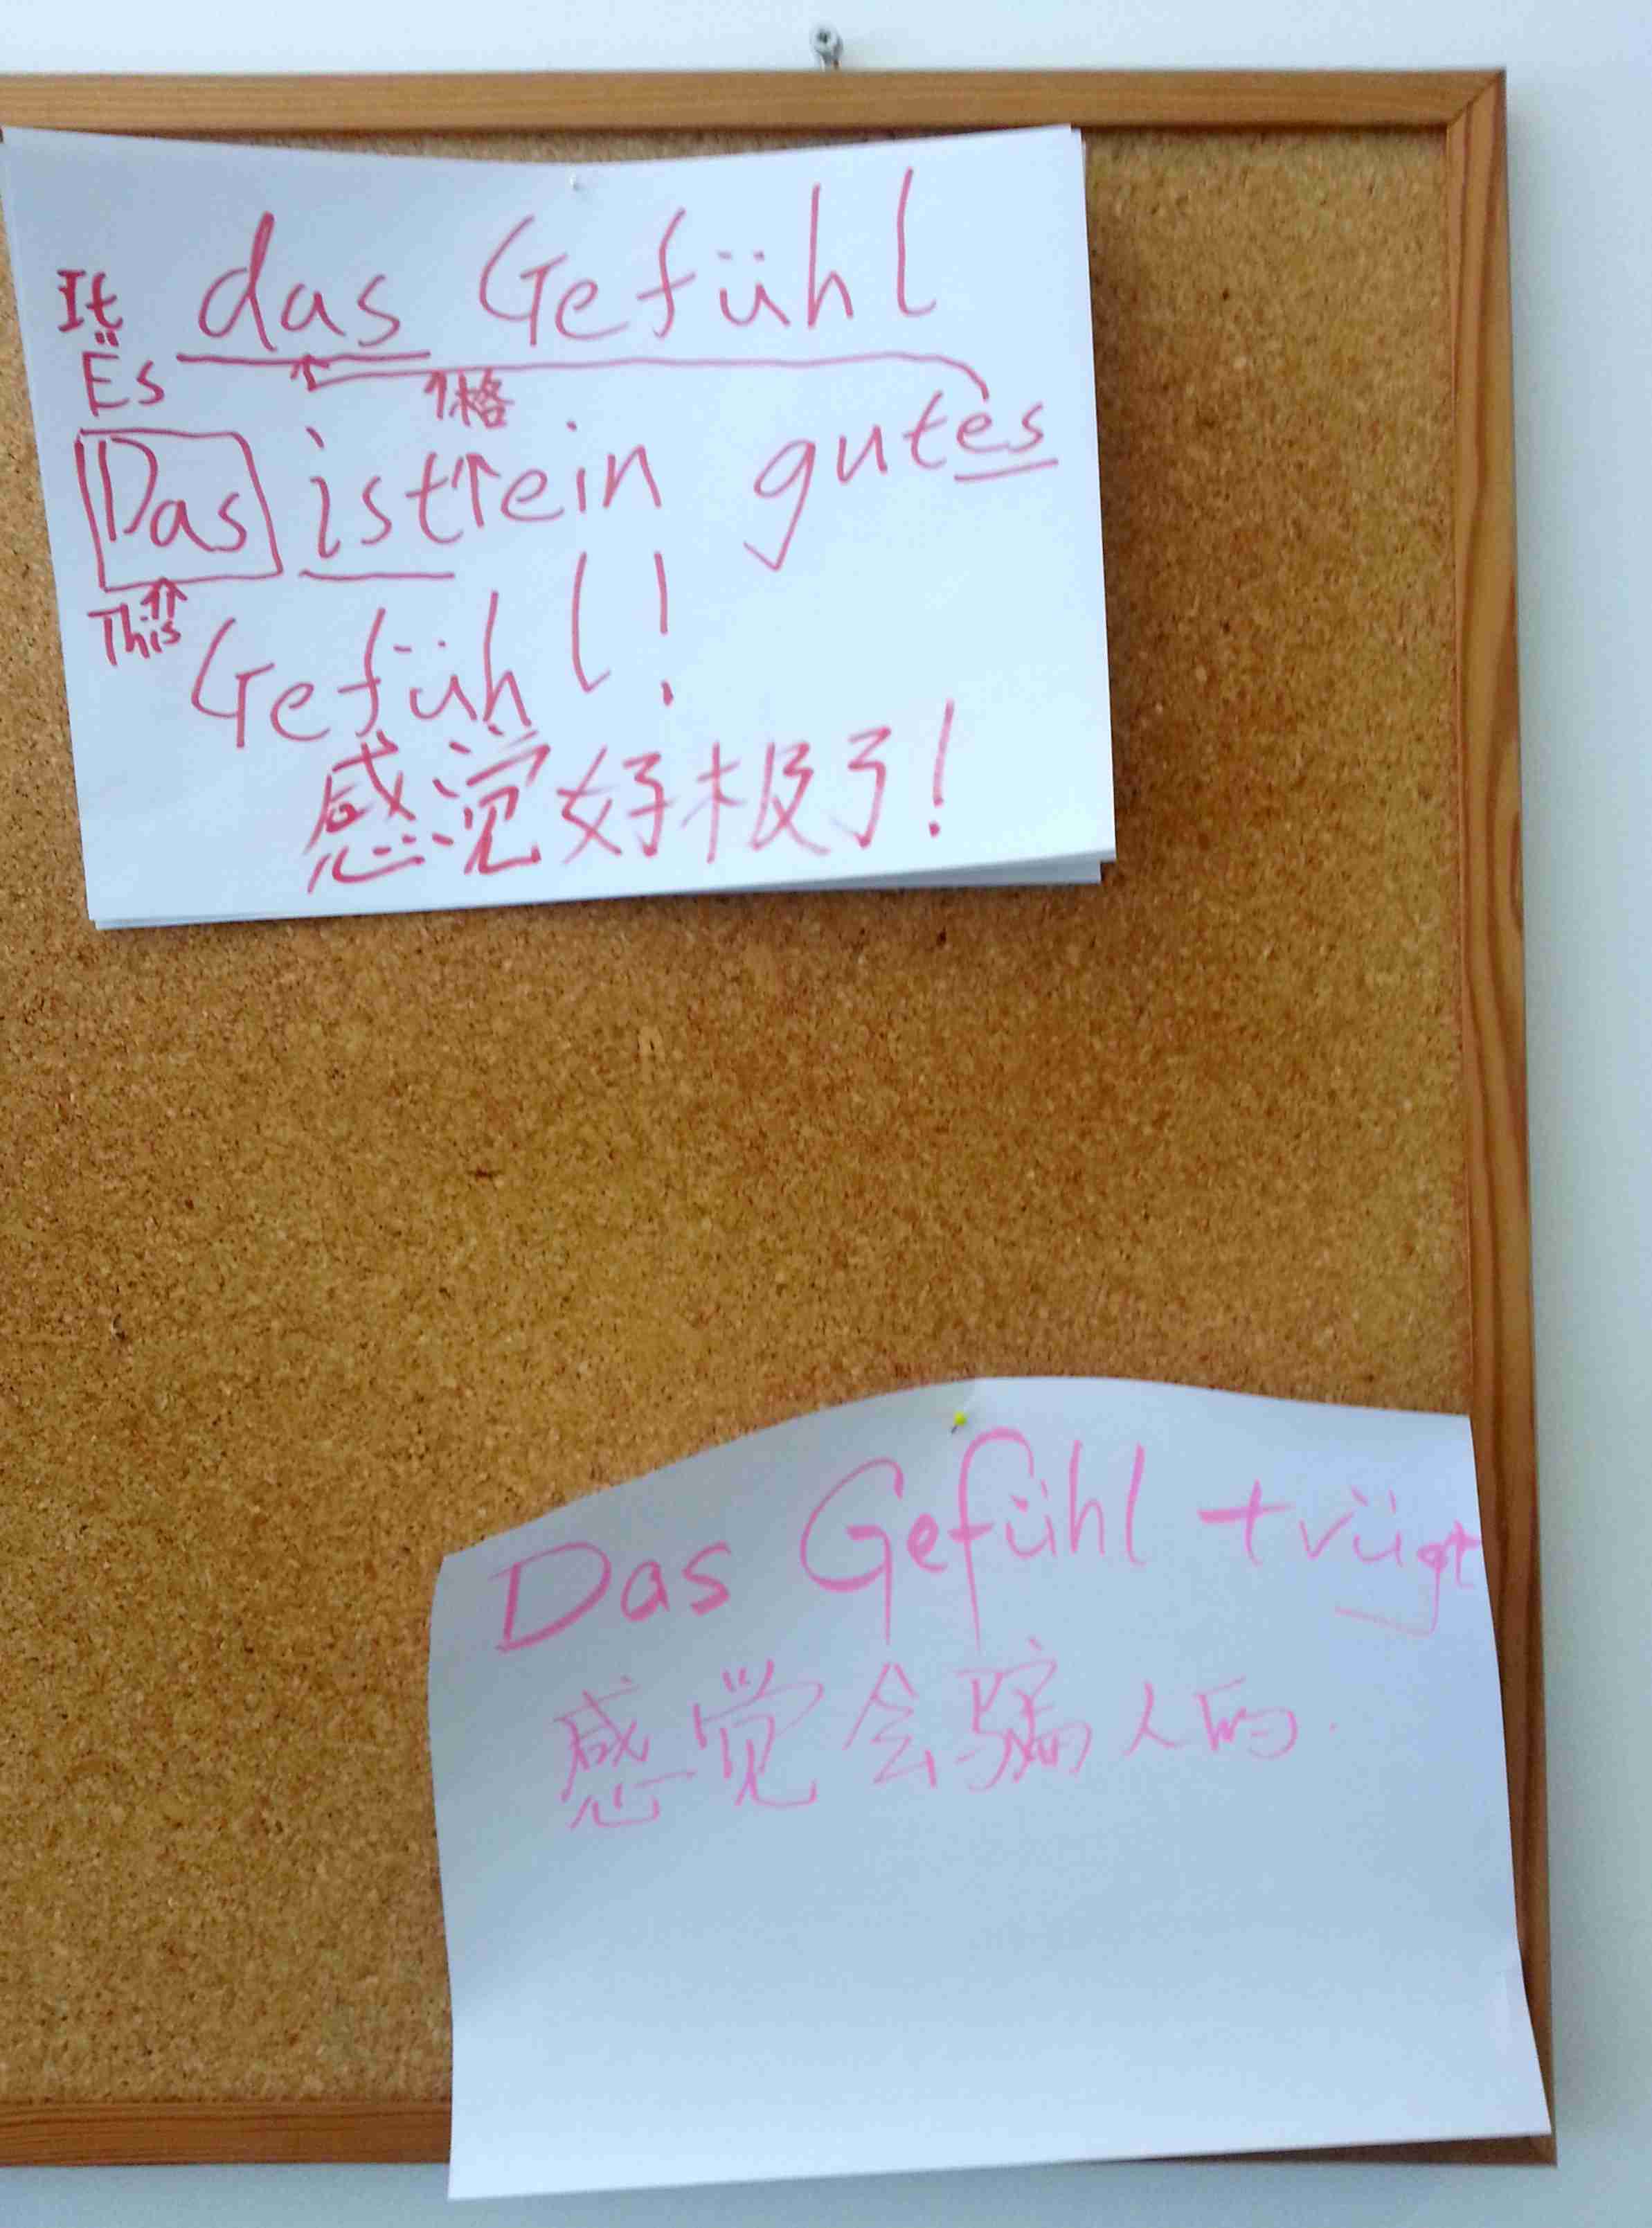 It das Gefühl
Es
1格
Das ist 1 ein gutes
This
Gefühl!
感觉好极了!
Das Gefühl trügt
感觉会骗人的.